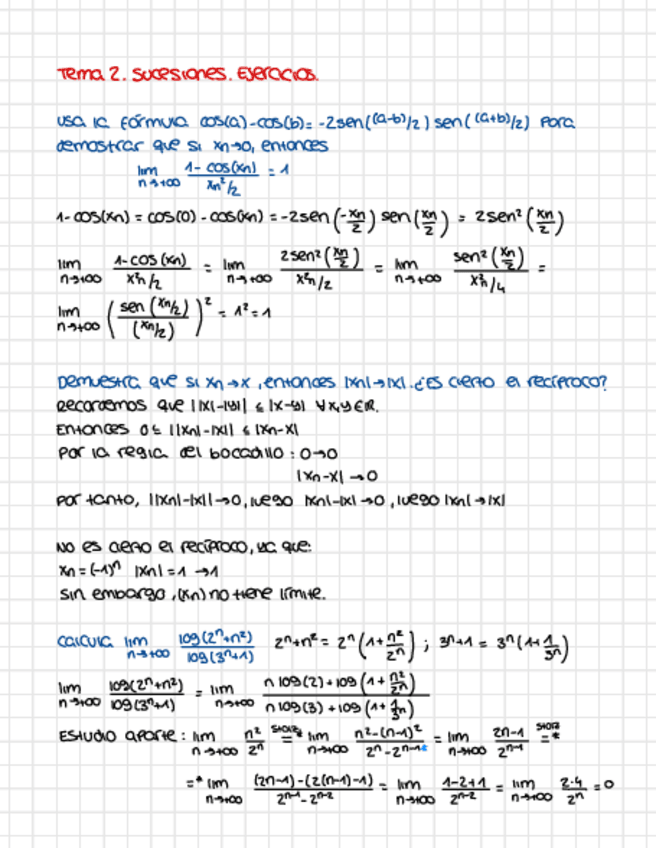 Tema 2. Sucesiones. Ejercicios.
Usa la fórmula cos(a)-cos(b)= -2sen((a-b)/2) sen((a+b)/2) para
demostrar que si xn→0, entonces
lim n→+∞ (1-cos(xn))/(xn²/2) = 1
1-cos(xn) = cos(0) - cos(xn) = -2sen(-xn/2) sen(xn/2) = 2sen²(xn/2)
lim n→+∞ (1-cos(xn))/(x²n/2) = lim n→+∞ (2sen²(xn/2))/(x²n/2) = lim n→+∞ (sen²(xn/2))/(x²n/4) =
lim n→+∞ (sen(xn/2)/(xn/2))² = 1² = 1
Demuestra que si xn→x, entonces |xn|→|x|. ¿Es cierto el recíproco?
Recordemos que ||x|-|y|| ≤ |x-y| ∀x,y∈R.
Entonces 0 ≤ ||xn|-|x|| ≤ |xn-x|
Por la regla del bocadillo: 0→0
|xn-x| →0
Por tanto, ||xn|-|x||→0, luego |xn|-|x|→0, luego |xn|→|x|
No es cierto el recíproco, ya que:
xn = (-1)ⁿ |xn| = 1 →1
Sin embargo, (xn) no tiene límite.
Calcula lim n→+∞ log(2ⁿ+n²)/log(3ⁿ+1) 2ⁿ+n² = 2ⁿ(1+n²/2ⁿ) ; 3ⁿ+1 = 3ⁿ(1+1/3ⁿ)
lim n→+∞ log(2ⁿ+n²)/log(3ⁿ+1) = lim n→+∞ (n log(2) + log(1+n²/2ⁿ))/(n log(3) + log(1+1/3ⁿ))
Estudio aparte: lim n→+∞ n²/2ⁿ =(Stolz) lim n→+∞ (n²-(n-1)²)/(2ⁿ-2ⁿ⁻¹) = lim n→+∞ (2n-1)/2ⁿ⁻¹ =*(Stolz)
=* lim n→+∞ ((2n-1)-(2(n-1)-1))/(2ⁿ⁻¹-2ⁿ⁻²) = lim n→+∞ (1-2+1)/2ⁿ⁻² = lim n→+∞ (2·4)/2ⁿ = 0